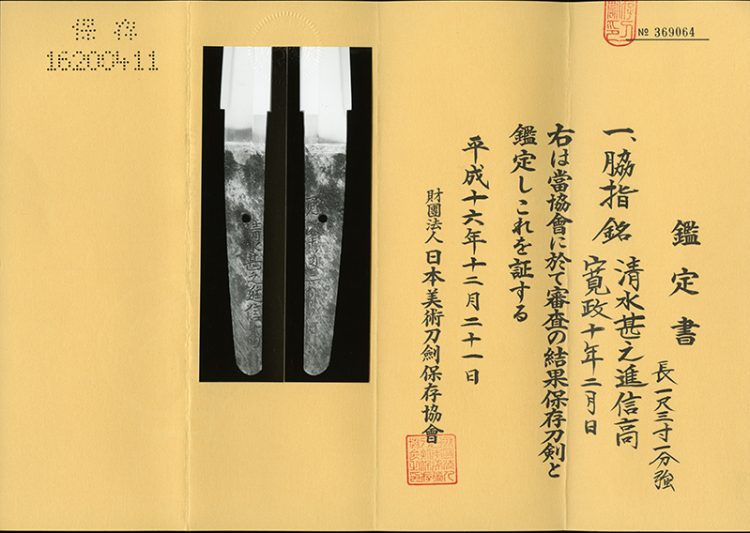 鑑定書
一、脇指 銘 清水甚之進信高
寛政十年二月日
長一尺三寸一分強
右は當協會に於て審査の結果保存刀剣と
鑑定しこれを証する
平成十六年十二月二十一日
財團法人 日本美術刀劍保存協會
№ 369064
保存
16200411